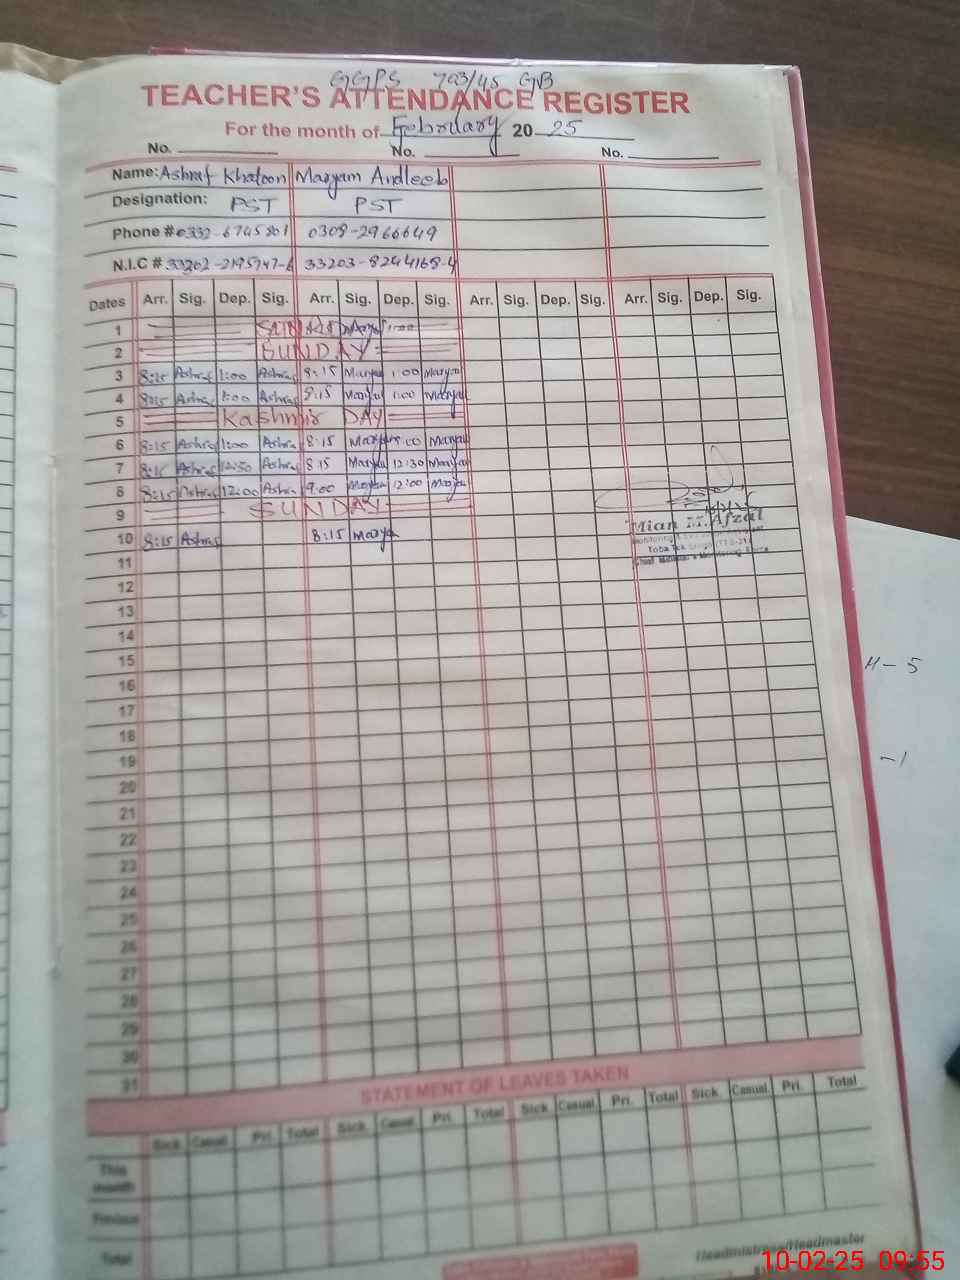 GGPS 703/45 GB
TEACHER'S ATTENDANCE REGISTER
For the month of February 20 25
No. No. No.
Name: Ashraf Khatoon Maryam Andleeb
Designation: PST PST
Phone # 0332-6745801 0308-2966649
N.I.C # 33203-8244168-4
Dates Arr. Sig. Dep. Sig. Arr. Sig. Dep. Sig. Arr. Sig. Dep. Sig. Arr. Sig. Dep. Sig.
1
2 SUNDAY
3 8:15 Ashraf 1:00 Ashraf 8:15 Maryam 1:00 Maryam
4 8:15 Ashraf 1:00 Ashraf 8:15 Maryam 1:00 Maryam
5 Kashmir DAY
6 8:15 Ashraf 1:00 Ashraf 8:15 Maryam 1:00 Maryam
7 8:15 Ashraf 12:30 Ashraf 8:15 Maryam 12:30 Maryam
8 8:15 Ashraf 12:00 Ashraf 9:00 Maryam 12:00 Maryam
9 SUNDAY
10 8:15 Ashraf 8:15 Maryam
Mian M. Afzal
Monitoring
Toba Tek
11
12
13
14
15
16
17
18
19
20
21
22
23
24
25
26
27
28
29
30
31
H-5
-1
STATEMENT OF LEAVES TAKEN
Sick Casual Pri. Total Sick. Casual Pri. Total Sick. Casual Pri. Total Sick. Casual Pri. Total
This month
Previous
Total
Headmistress/Headmaster
10-02-25 09:55